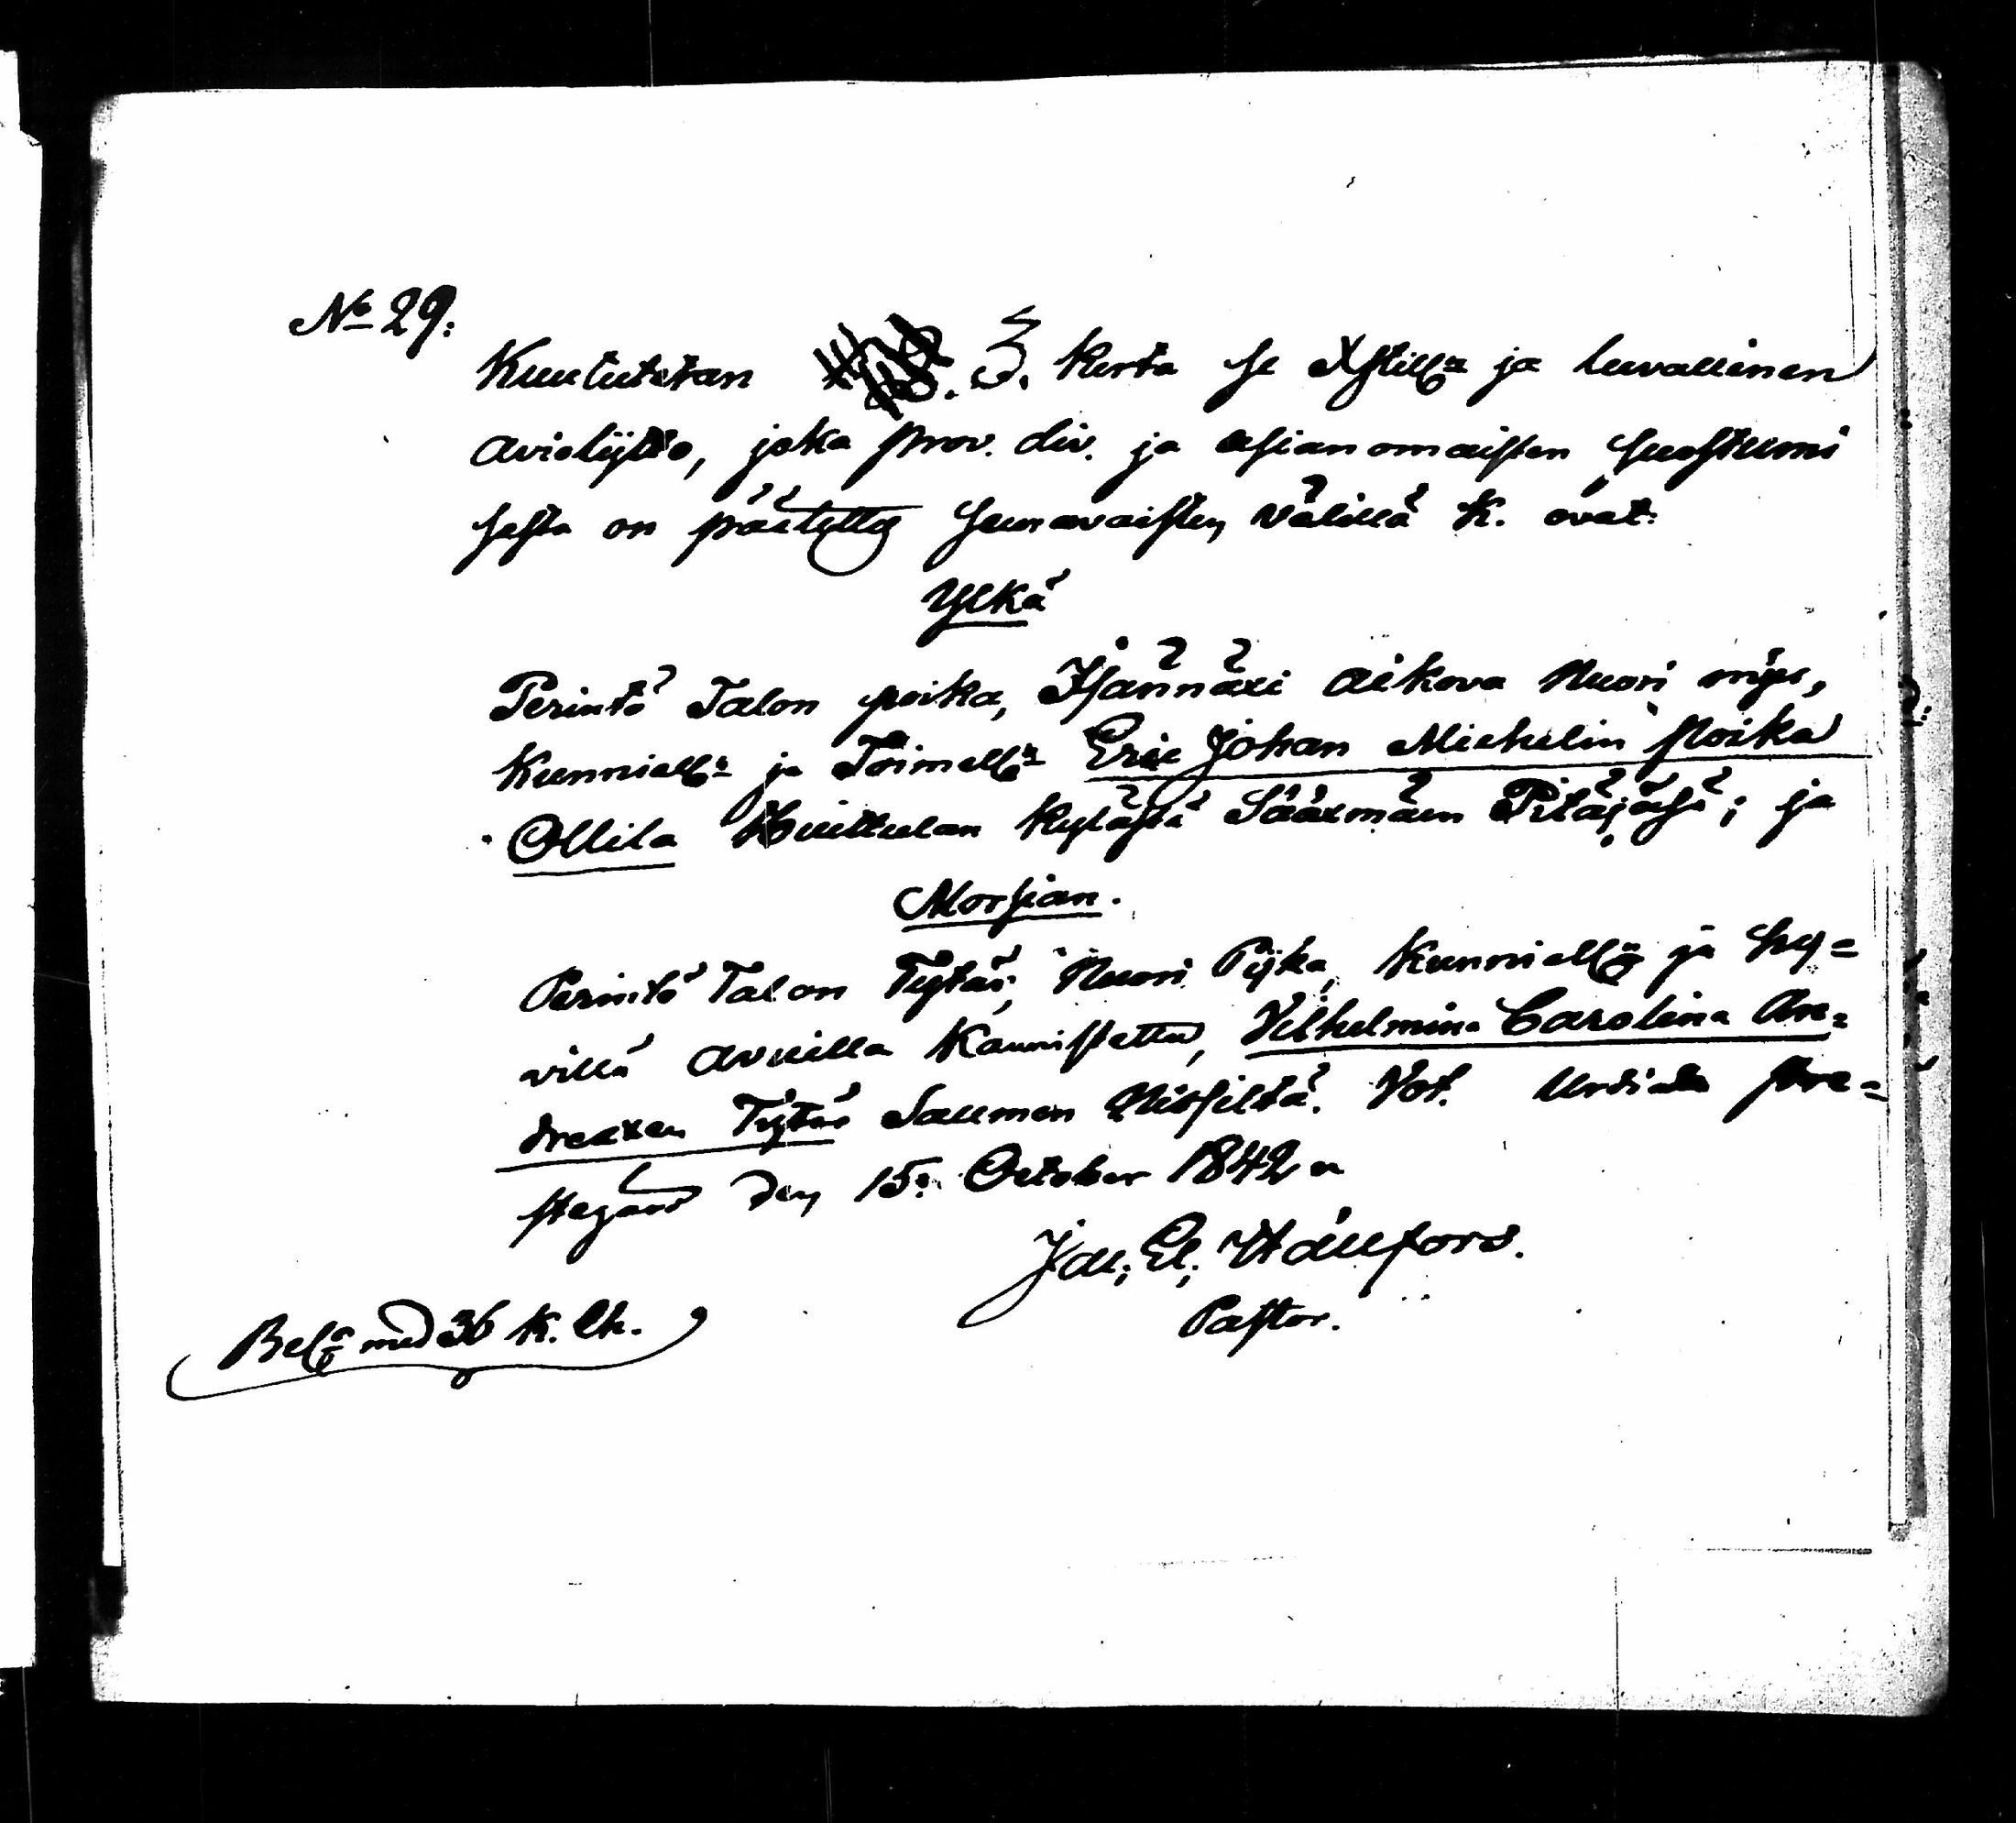 No 29.
Kuulutetan 3. kerta se Xstilln ja luvallinen
avioliytto, joka prov. div. ja asianomaisten suostumi
sesta on päätetty seuravaisten välillä k. ovat:
Ylkä
Perintö Talon poika, Isännäxi aikova Nuori mijes,
Kunnialln ja Toimelln Eric Johan Michelin poika
Ollila Huittulan kylästä Sääxmäen Pitäjäsä; ja
Morsian.
Perintö Talon Tytär, Nuori Pijka, Kunniallen ja hy=
villä avuilla kaunistettu, Vilhelmina Carolina An=
drexen Tytär Saumen Nissiltä. Vst. Urdiala Pre=
stegård den 15. October 1842
Jac. El. Hällfors.
Pastor.
Belg med 36 k.